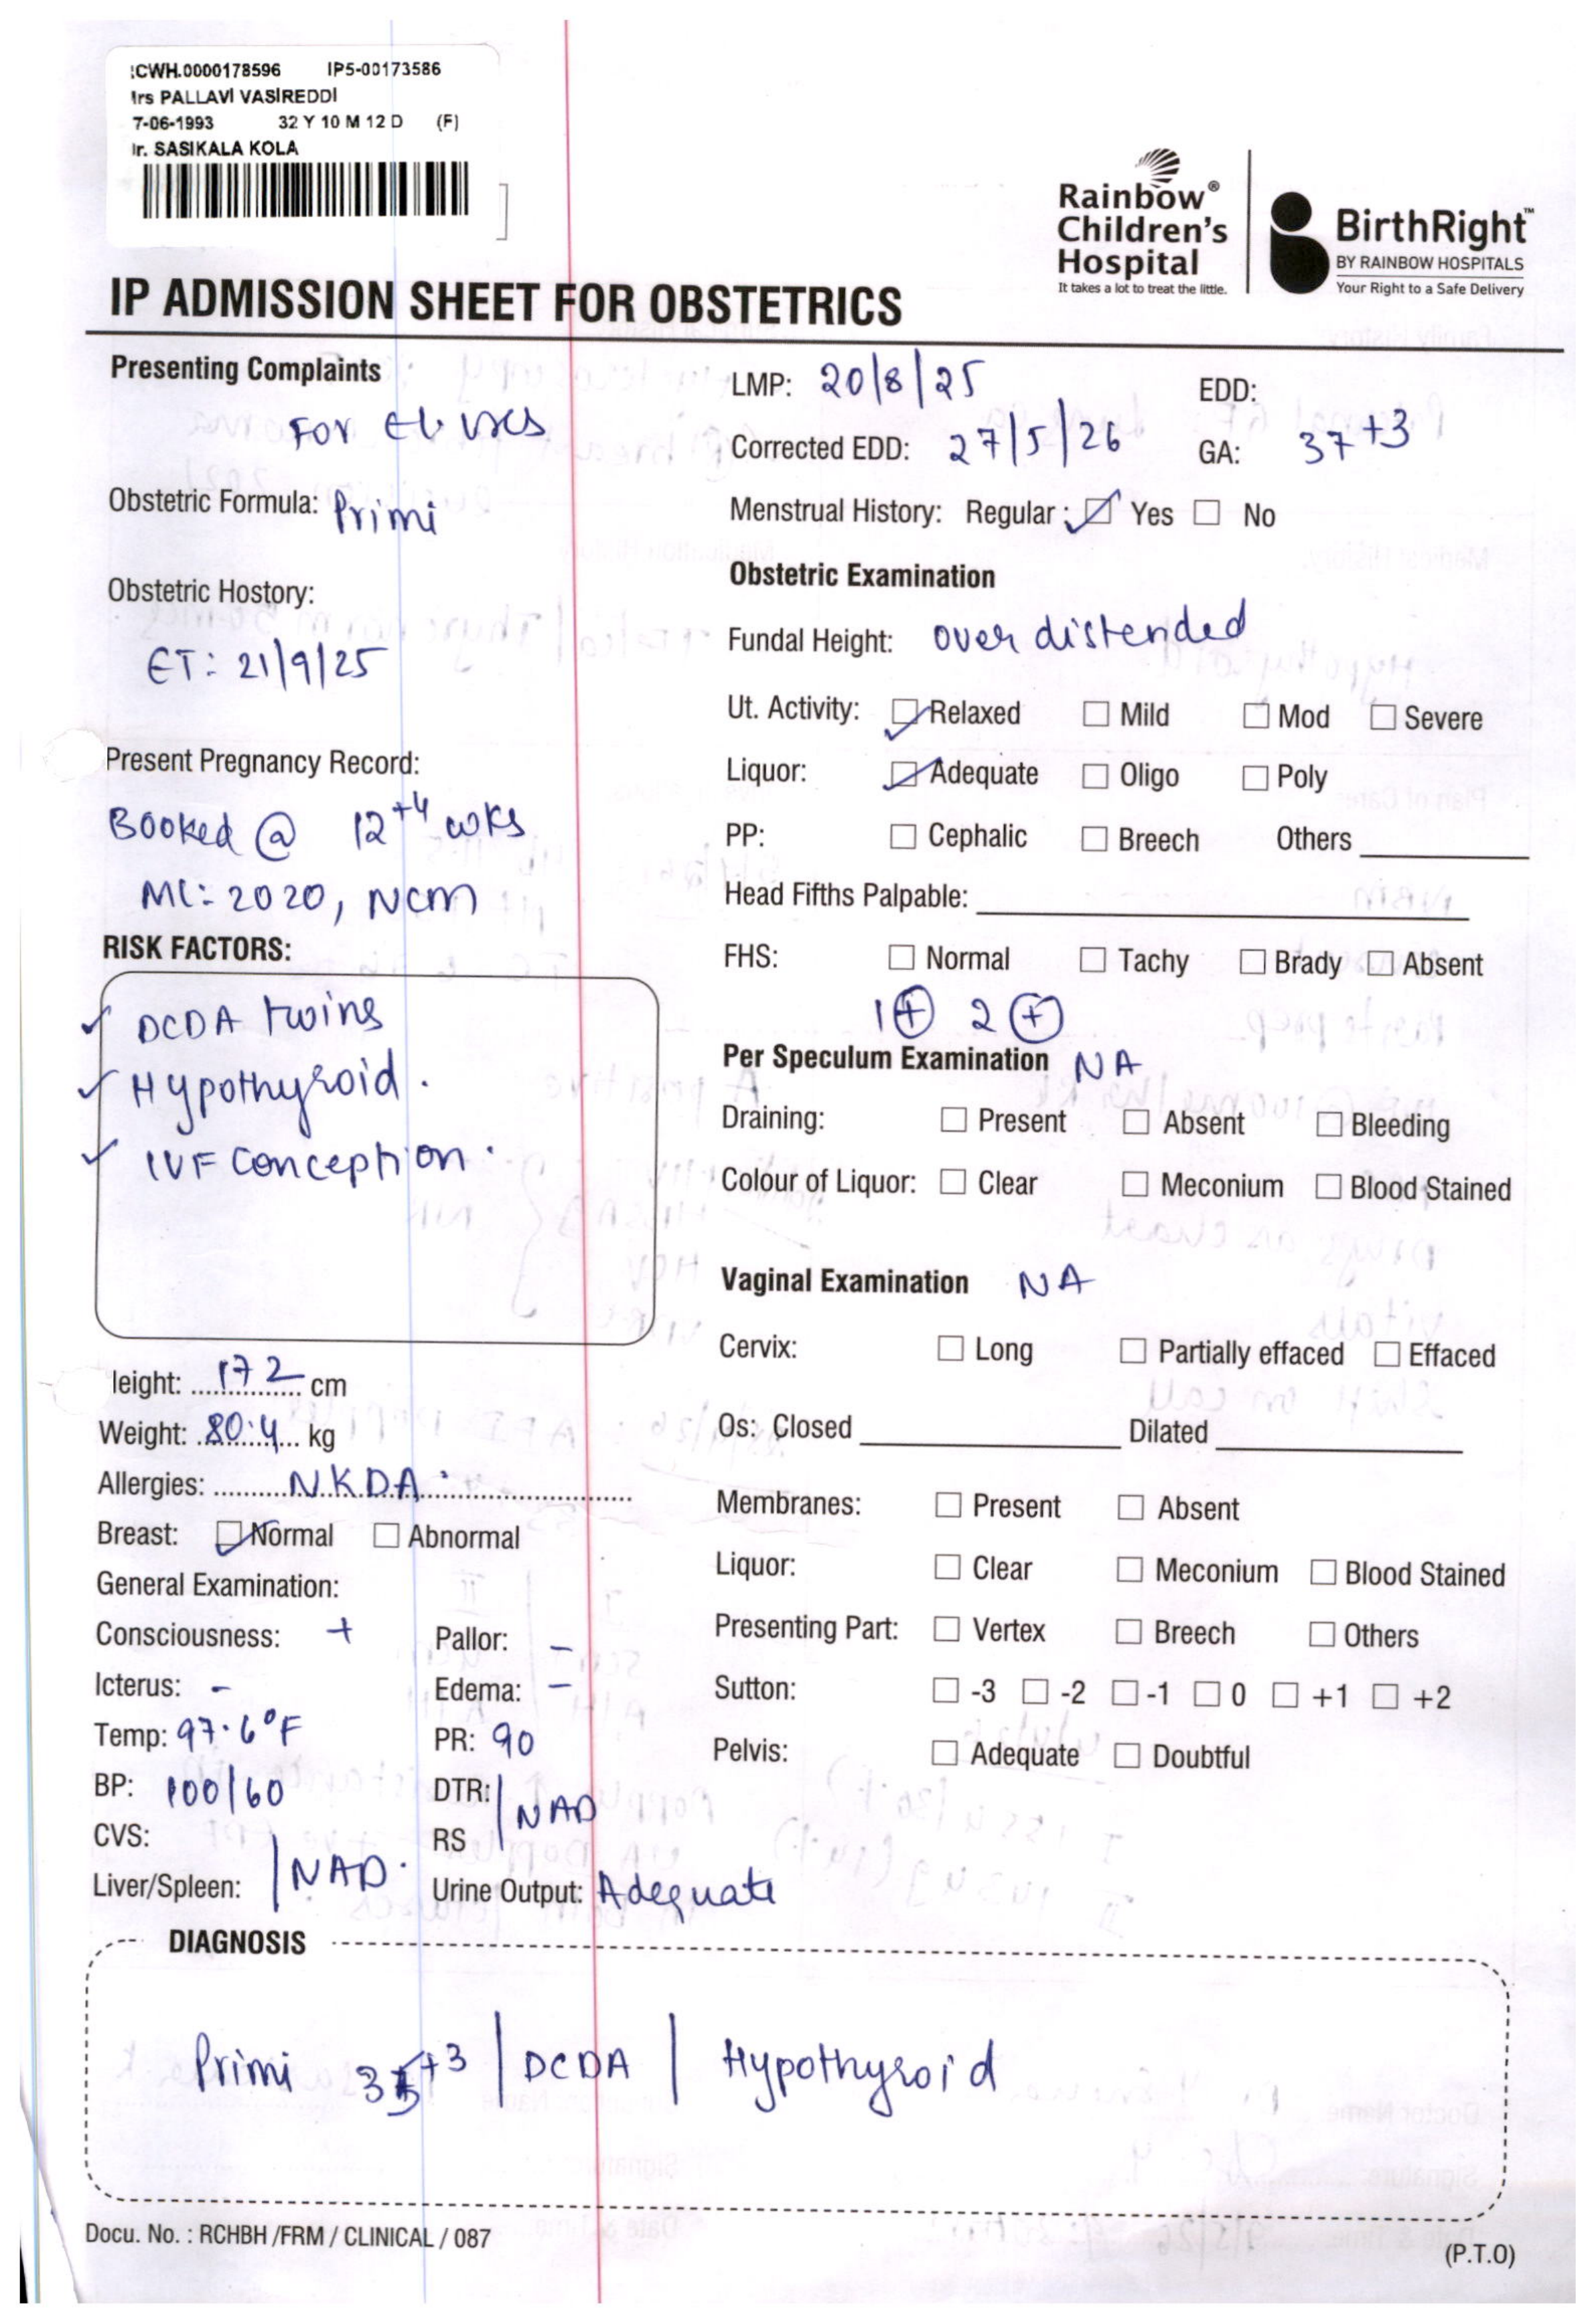 :CWH.0000178596 IP5-00173586
Irs PALLAVI VASIREDDI
7-06-1993 32 Y 10 M 12 D (F)
Ir. SASIKALA KOLA
Rainbow® Children's Hospital
It takes a lot to treat the little.
BirthRight™
BY RAINBOW HOSPITALS
Your Right to a Safe Delivery
IP ADMISSION SHEET FOR OBSTETRICS
Presenting Complaints
For El.
Obstetric Formula: Primi
Obstetric Hostory:
ET: 21/9/25
Present Pregnancy Record:
Booked @ 12+4 wks
ML: 2020, NCM
RISK FACTORS:
✓ DCDA twins
✓ Hypothyroid.
✓ IVF Conception.
Ieight: 172 cm
Weight: 80.4 kg
Allergies: NKDA.
Breast: ☑ Normal ☐ Abnormal
General Examination:
Consciousness: + Pallor: -
Icterus: - Edema: -
Temp: 97.6°F PR: 90
BP: 100/60 DTR:
CVS: RS NAD
Liver/Spleen: NAD. Urine Output: Adequate
LMP: 20/8/25 EDD:
Corrected EDD: 27/5/26 GA: 37+3
Menstrual History: Regular: ☑ Yes ☐ No
Obstetric Examination
Fundal Height: over distended
Ut. Activity: ☑ Relaxed ☐ Mild ☐ Mod ☐ Severe
Liquor: ☑ Adequate ☐ Oligo ☐ Poly
PP: ☐ Cephalic ☐ Breech Others
Head Fifths Palpable:
FHS: ☐ Normal ☐ Tachy ☐ Brady ☐ Absent
1 ⊕ 2 ⊕
Per Speculum Examination NA
Draining: ☐ Present ☐ Absent ☐ Bleeding
Colour of Liquor: ☐ Clear ☐ Meconium ☐ Blood Stained
Vaginal Examination NA
Cervix: ☐ Long ☐ Partially effaced ☐ Effaced
Os: Closed Dilated
Membranes: ☐ Present ☐ Absent
Liquor: ☐ Clear ☐ Meconium ☐ Blood Stained
Presenting Part: ☐ Vertex ☐ Breech ☐ Others
Sutton: ☐ -3 ☐ -2 ☐ -1 ☐ 0 ☐ +1 ☐ +2
Pelvis: ☐ Adequate ☐ Doubtful
DIAGNOSIS
Primi | DCDA | Hypothyroid
Docu. No. : RCHBH /FRM / CLINICAL / 087
(P.T.O)